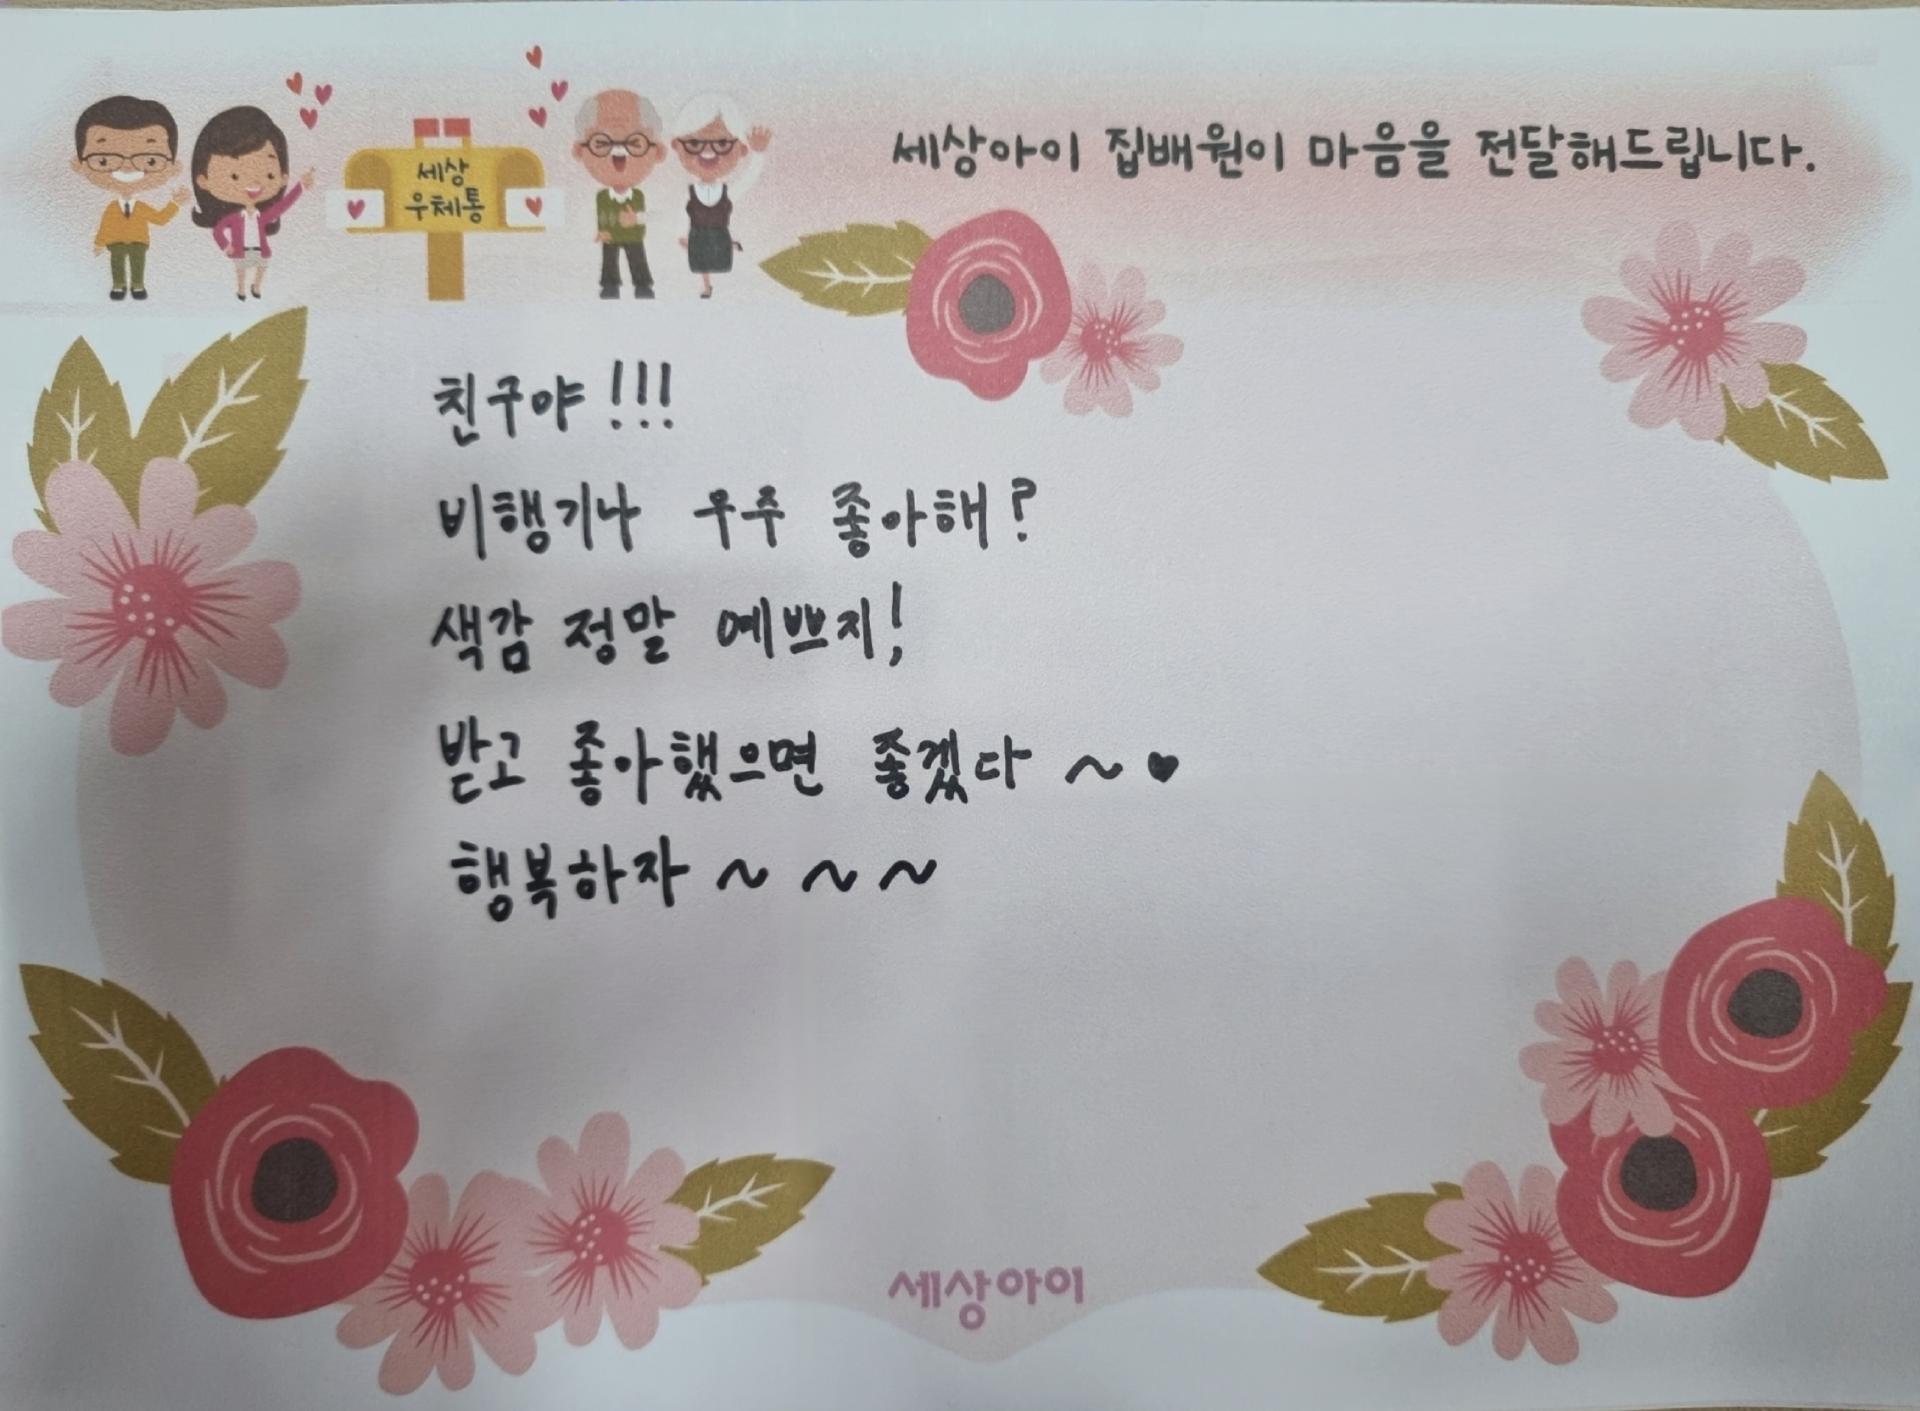 세상아이 집배원이 마음을 전달해드립니다.
세상
우체통
친구야!!!
비행기나 우주 좋아해?
색감 정말 예쁘지!
받고 좋아했으면 좋겠다 ~ ♥
행복하자 ~ ~ ~
세상아이